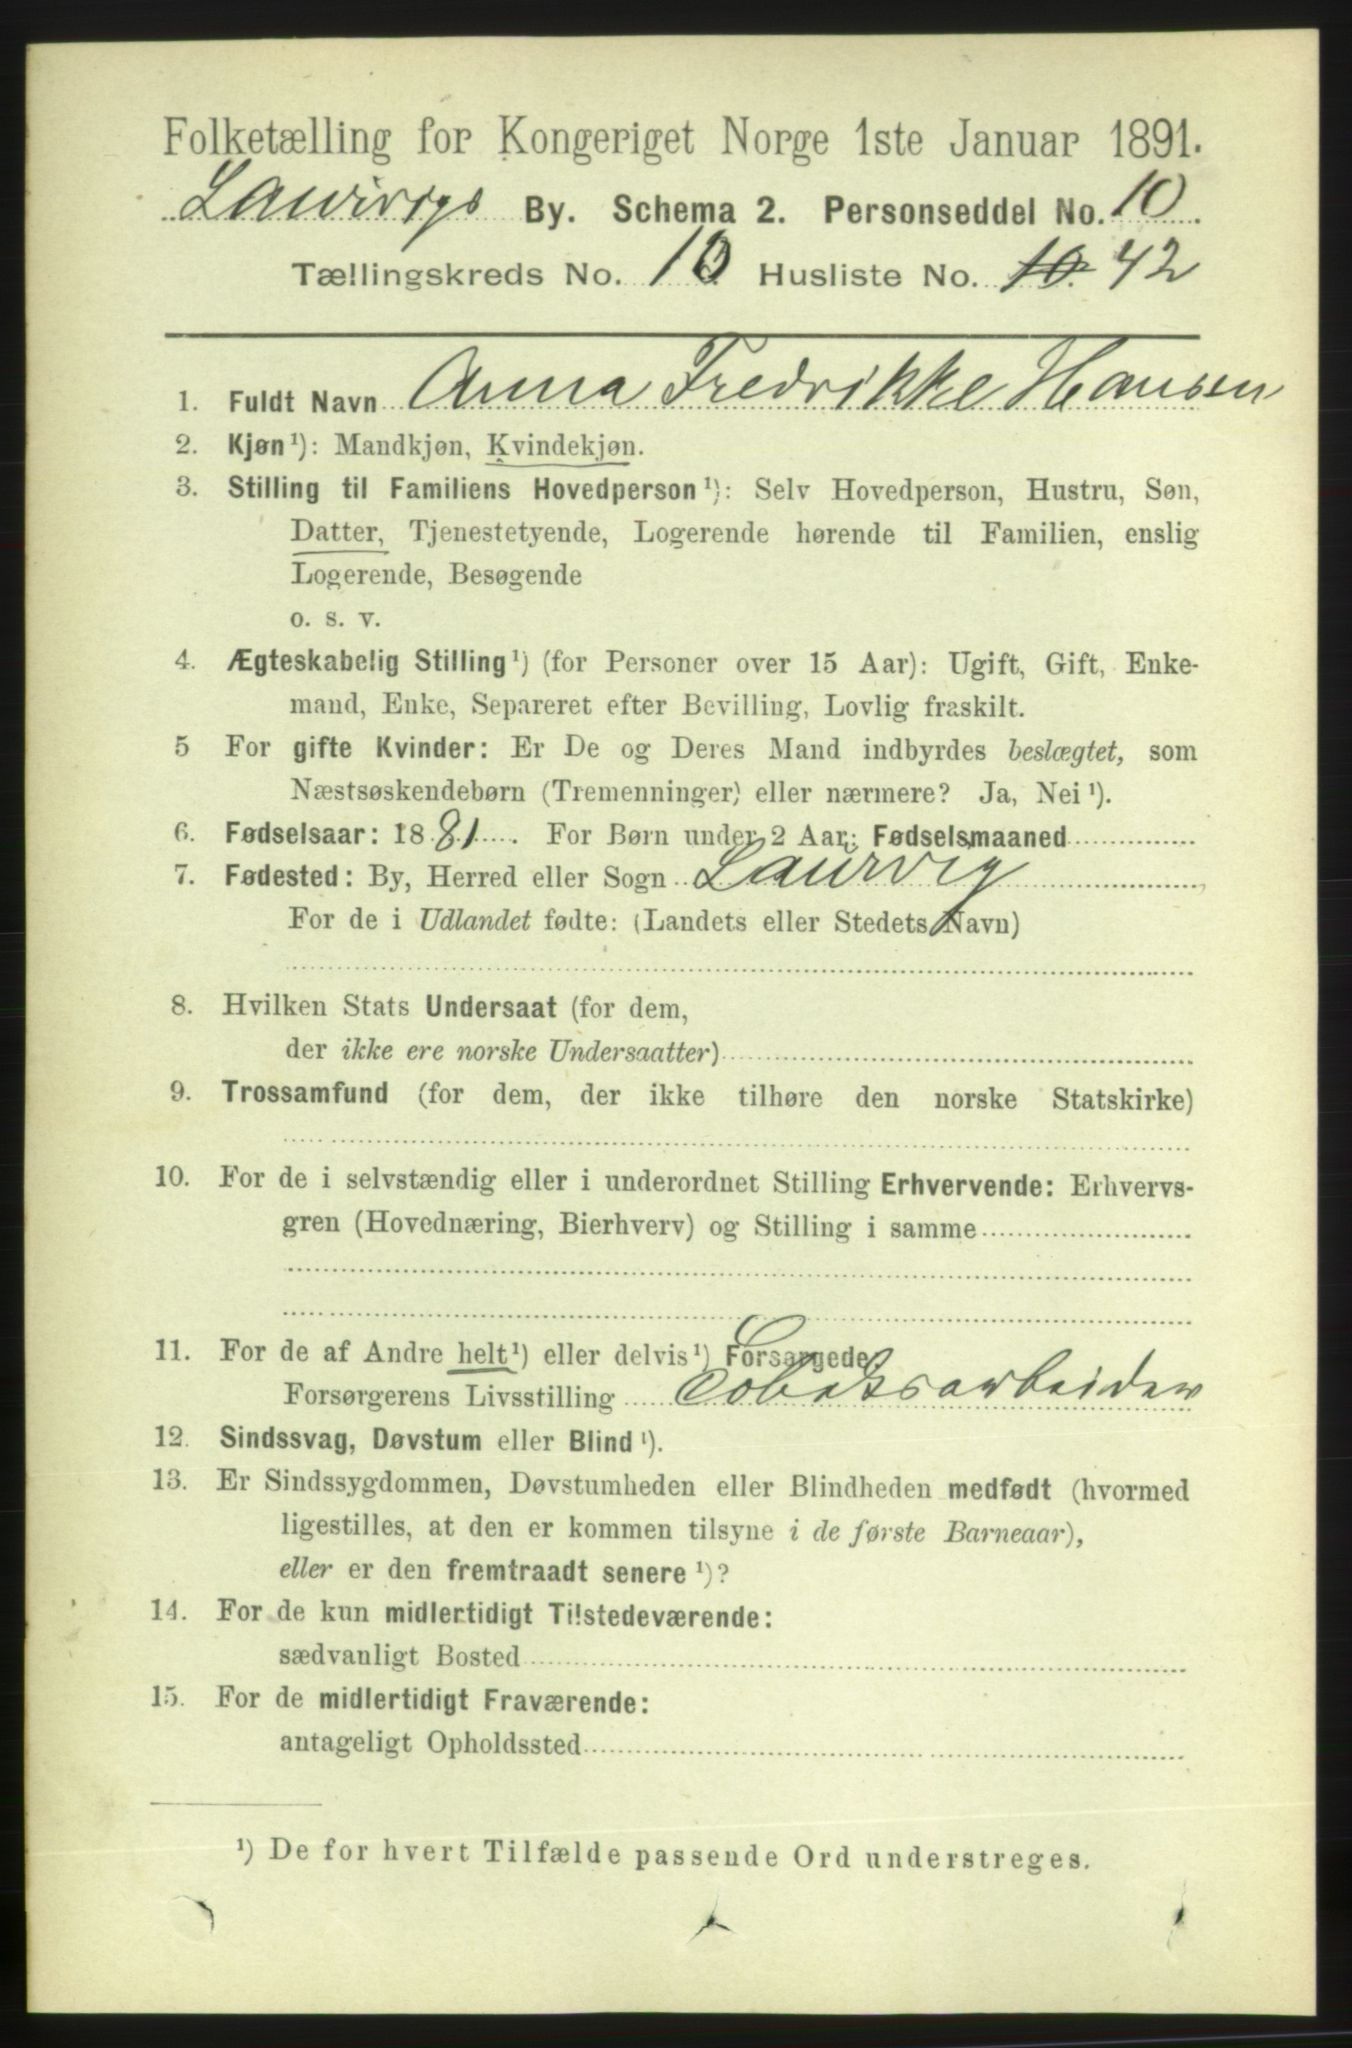 Folketælling for Kongeriget Norge 1ste Januar 1891.
Laurvigs By. Schema 2. Personseddel No. 10.
Tællingskreds No. 10 Husliste No. 10. 42
1. Fuldt Navn Anna Fredrikke Hansen
2. Kjøn ¹): Mandkjøn, Kvindekjøn.
3. Stilling til Familiens Hovedperson ¹): Selv Hovedperson, Hustru, Søn,
Datter, Tjenestetyende, Logerende hørende til Familien, enslig
Logerende, Besøgende
o. s. v.
4. Ægteskabelig Stilling ¹) (for Personer over 15 Aar): Ugift, Gift, Enke-
mand, Enke, Separeret efter Bevilling, Lovlig fraskilt.
5 For gifte Kvinder: Er De og Deres Mand indbyrdes beslægtet, som
Næstsøskendebørn (Tremenninger) eller nærmere? Ja, Nei ¹).
6. Fødselsaar: 1881. For Børn under 2 Aar: Fødselsmaaned
7. Fødested: By, Herred eller Sogn Laurvig,
For de i Udlandet fødte: (Landets eller Stedets Navn)
8. Hvilken Stats Undersaat (for dem,
der ikke ere norske Undersaatter)
9. Trossamfund (for dem, der ikke tilhøre den norske Statskirke)
10. For de i selvstændig eller i underordnet Stilling Erhvervende: Erhvervs-
gren (Hovednæring, Bierhverv) og Stilling i samme
11. For de af Andre helt ¹) eller delvis ¹) Forsørgede
Forsørgerens Livsstilling Tobaksarbeider
12. Sindssvag, Døvstum eller Blind ¹).
13. Er Sindssygdommen, Døvstumheden eller Blindheden medfødt (hvormed
ligestilles, at den er kommen tilsyne i de første Barneaar),
eller er den fremtraadt senere ¹)?
14. For de kun midlertidigt Tilstedeværende:
sædvanligt Bosted
15. For de midlertidigt Fraværende:
antageligt Opholdssted
¹) De for hvert Tilfælde passende Ord understreges.